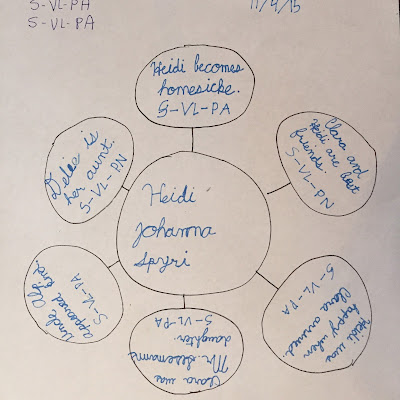 S-VL-PA
S-VL-PA
11/4/15
Heidi becomes
homesicke.
S-VL-PA
Clara and
Heidi are best
friends.
S-VL-PN
Heidi was
happy when
Clara arrived.
S-VL-PA
Clara was
Mr.
daughter.
S-VL-PA
Uncle Alp
appeared kind.
S-VL-PA
is
her aunt.
S-VL-PN
Heidi
Johanna
Spyri